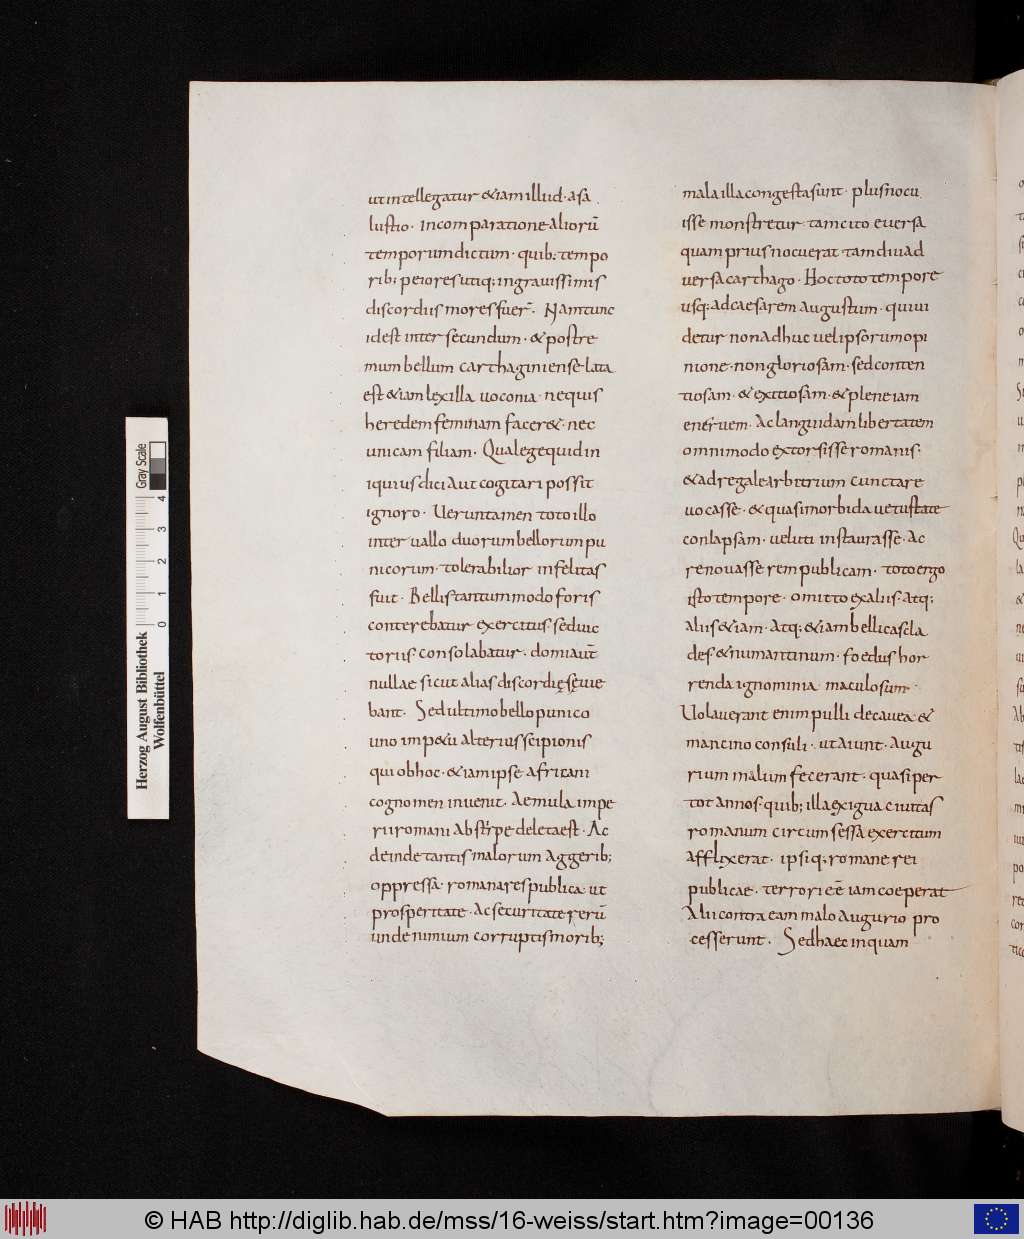 ut intellegatur & iam illud · a sa
lustio · in comparatione aliorū
temporum dictum · quib; tempo
rib; peiores utiq; in grauissimis
discordiis mores fuer̄ · Nam tunc
idest inter secundum · & postre
mum bellum carthaginiense lata
est & iam lex illa uoconia · nequis
heredem feminam facer& · nec
unicam filiam · Qua lege quid in
iquius dici aut cogitari possit
ignoro · Ueruntamen toto illo
interuallo duorum bellorum pu
nicorum · tolerabilior infelitas
fuit · Bellis tantummodo foris
conterebatur exercitus · sed uic
toriis consolabatur · domi aut̄
nullae sicut alias discordię sęuie
bant · Sed ultimo bello punico
uno imp&u alterius scipionis
qui ob hoc · & iam ipse africani
cognomen inuenit · Aemula impe
rii romani ab stirpe deleta est · Ac
deinde tantis malorum aggerib;
oppressa · romana res publica ut
prosperitate · Ac securitate rerū
unde nimium corruptis morib;
mala illa congesta sunt · plus nocu
isse monstretur · tam cito euersa
quam prius nocuerat · tam diu ad
uersa carthago · Hoc toto tempore
usq; ad caesarem augustum · qui ui
detur non adhuc uel ipsorum opi
nione · non gloriosam · sed conten
tiosam · & exitiosam · & plene iam
eneruem · Ac languidam libertatem
omnimodo extorsisse romanis ·
& ad regale arbitrium cunctare
uocasse · & quasi morbida uetustate
conlapsam · ueluti instaurasse · Ac
renouasse rem publicam · toto ergo
isto tempore · omitto ex aliis · Atq;
aliis & iam · Atq; & iam bellicas cla
des & numantinum · foedus hor
renda ignominia maculosum ·
Uolauerant enim pulli de cauea &
mancino consuli · ut aiunt · Augu
rium malum fecerant · quasi per
tot annos · quib; illa exigua ciuitas
romanum circumsessa exercitum
afflixerat · ipsiq; romane rei
publicae · terrori eē iam coeperat
Alii contra eam malo augurio pro
cesserunt · Sed haec inquam
Herzog August Bibliothek
Wolfenbüttel
0 1 2 3 4
Gray Scale
© HAB http://diglib.hab.de/mss/16-weiss/start.htm?image=00136